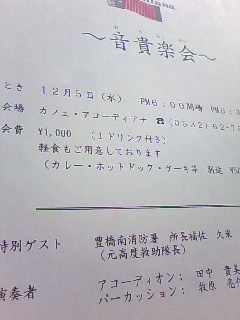 ～音貴楽会～
とき 12月5日(水) PM6:00開場 PM6:3
会場 カフェ・アコーディアナ ☎(0532)62-7
会費 ¥1,000 (1ドリンク付き)
軽食もご用意しております
(カレー・ホットドック・ケーキ等 別途 ¥50
特別ゲスト 豊橋南消防署 所長補佐 久米
(元高度救助隊長)
演奏者 アコーディオン: 田中 貴美
パーカッション: 牧原 亮